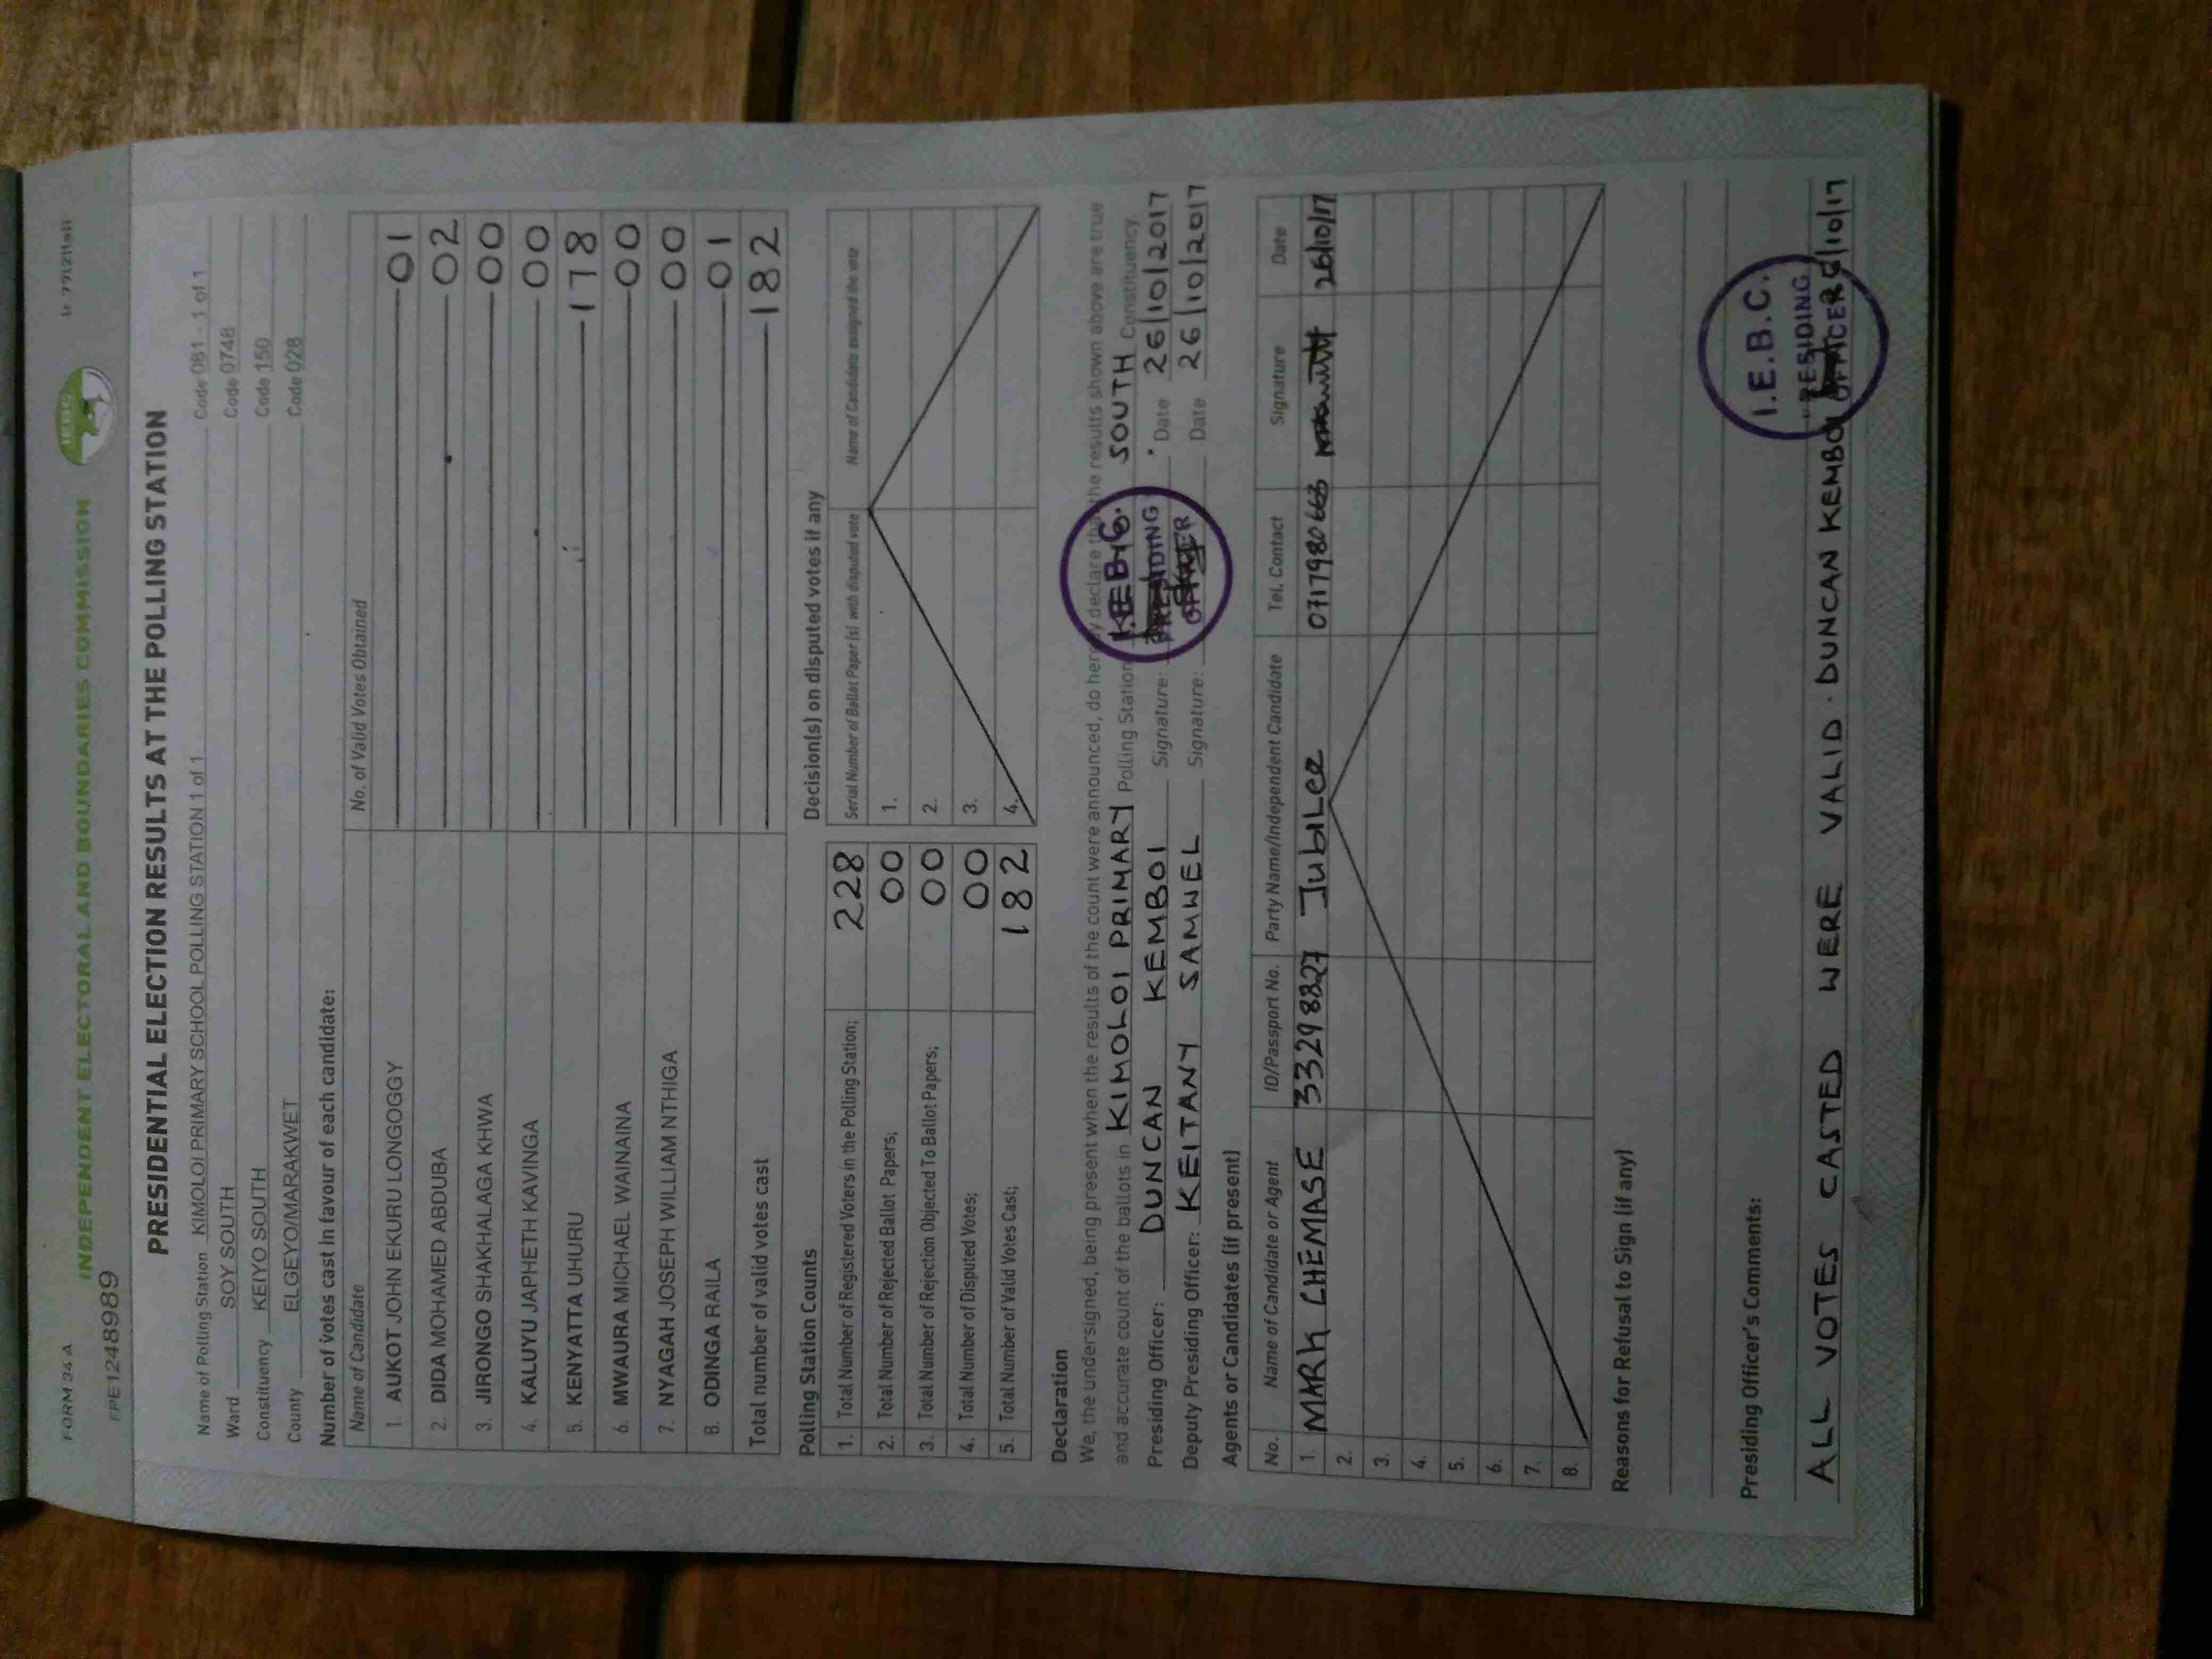 FORM 34 A
INDEPENDENT ELECTORAL AND BOUNDARIES COMMISSION
IEBC
FPE12489989
PRESIDENTIAL ELECTION RESULTS AT THE POLLING STATION
Name of Polling Station KIMOLOI PRIMARY SCHOOL POLLING STATION 1 of 1 Code 081 - 1 of 1
Ward SOY SOUTH Code 0748
Constituency KEIYO SOUTH Code 150
County ELGEYO/MARAKWET Code 028
Number of votes cast in favour of each candidate:
Name of Candidate No. of Valid Votes Obtained
1. AUKOT JOHN EKURU LONGOGGY 01
2. DIDA MOHAMED ABDUBA 02
3. JIRONGO SHAKHALAGA KHWA 00
4. KALUYU JAPHETH KAVINGA 00
5. KENYATTA UHURU 178
6. MWAURA MICHAEL WAINAINA 00
7. NYAGAH JOSEPH WILLIAM NTHIGA 00
8. ODINGA RAILA 01
Total number of valid votes cast 182
Polling Station Counts
1. Total Number of Registered Voters in the Polling Station; 228
2. Total Number of Rejected Ballot Papers; 00
3. Total Number of Rejection Objected To Ballot Papers; 00
4. Total Number of Disputed Votes; 00
5. Total Number of Valid Votes Cast; 182
Decision(s) on disputed votes if any
Serial Number of Ballot Paper (s) with disputed vote Name of Candidate assigned the vote
1.
2.
3.
4.
Declaration
We, the undersigned, being present when the results of the count were announced, do hereby declare that the results shown above are true
and accurate count of the ballots in KIMOLOI PRIMARY Polling Station SOUTH Constituency.
Presiding Officer: DUNCAN KEMBOI Signature: Date 26/10/2017
Deputy Presiding Officer: KEITANY SAMWEL Signature: Date 26/10/2017
PRESIDING
OFFICER
Agents or Candidates (if present)
No. Name of Candidate or Agent ID/Passport No. Party Name/Independent Candidate Tel. Contact Signature Date
1. MARK CHEMASE 33298827 JubiLee 0717980663 26/10/17
2.
3.
4.
5.
6.
7.
8.
Reasons for Refusal to Sign (if any)
Presiding Officer's Comments:
I.E.B.C.
PRESIDING
OFFICER
ALL VOTES CASTED WERE VALID. DUNCAN KEMBOI /10/17